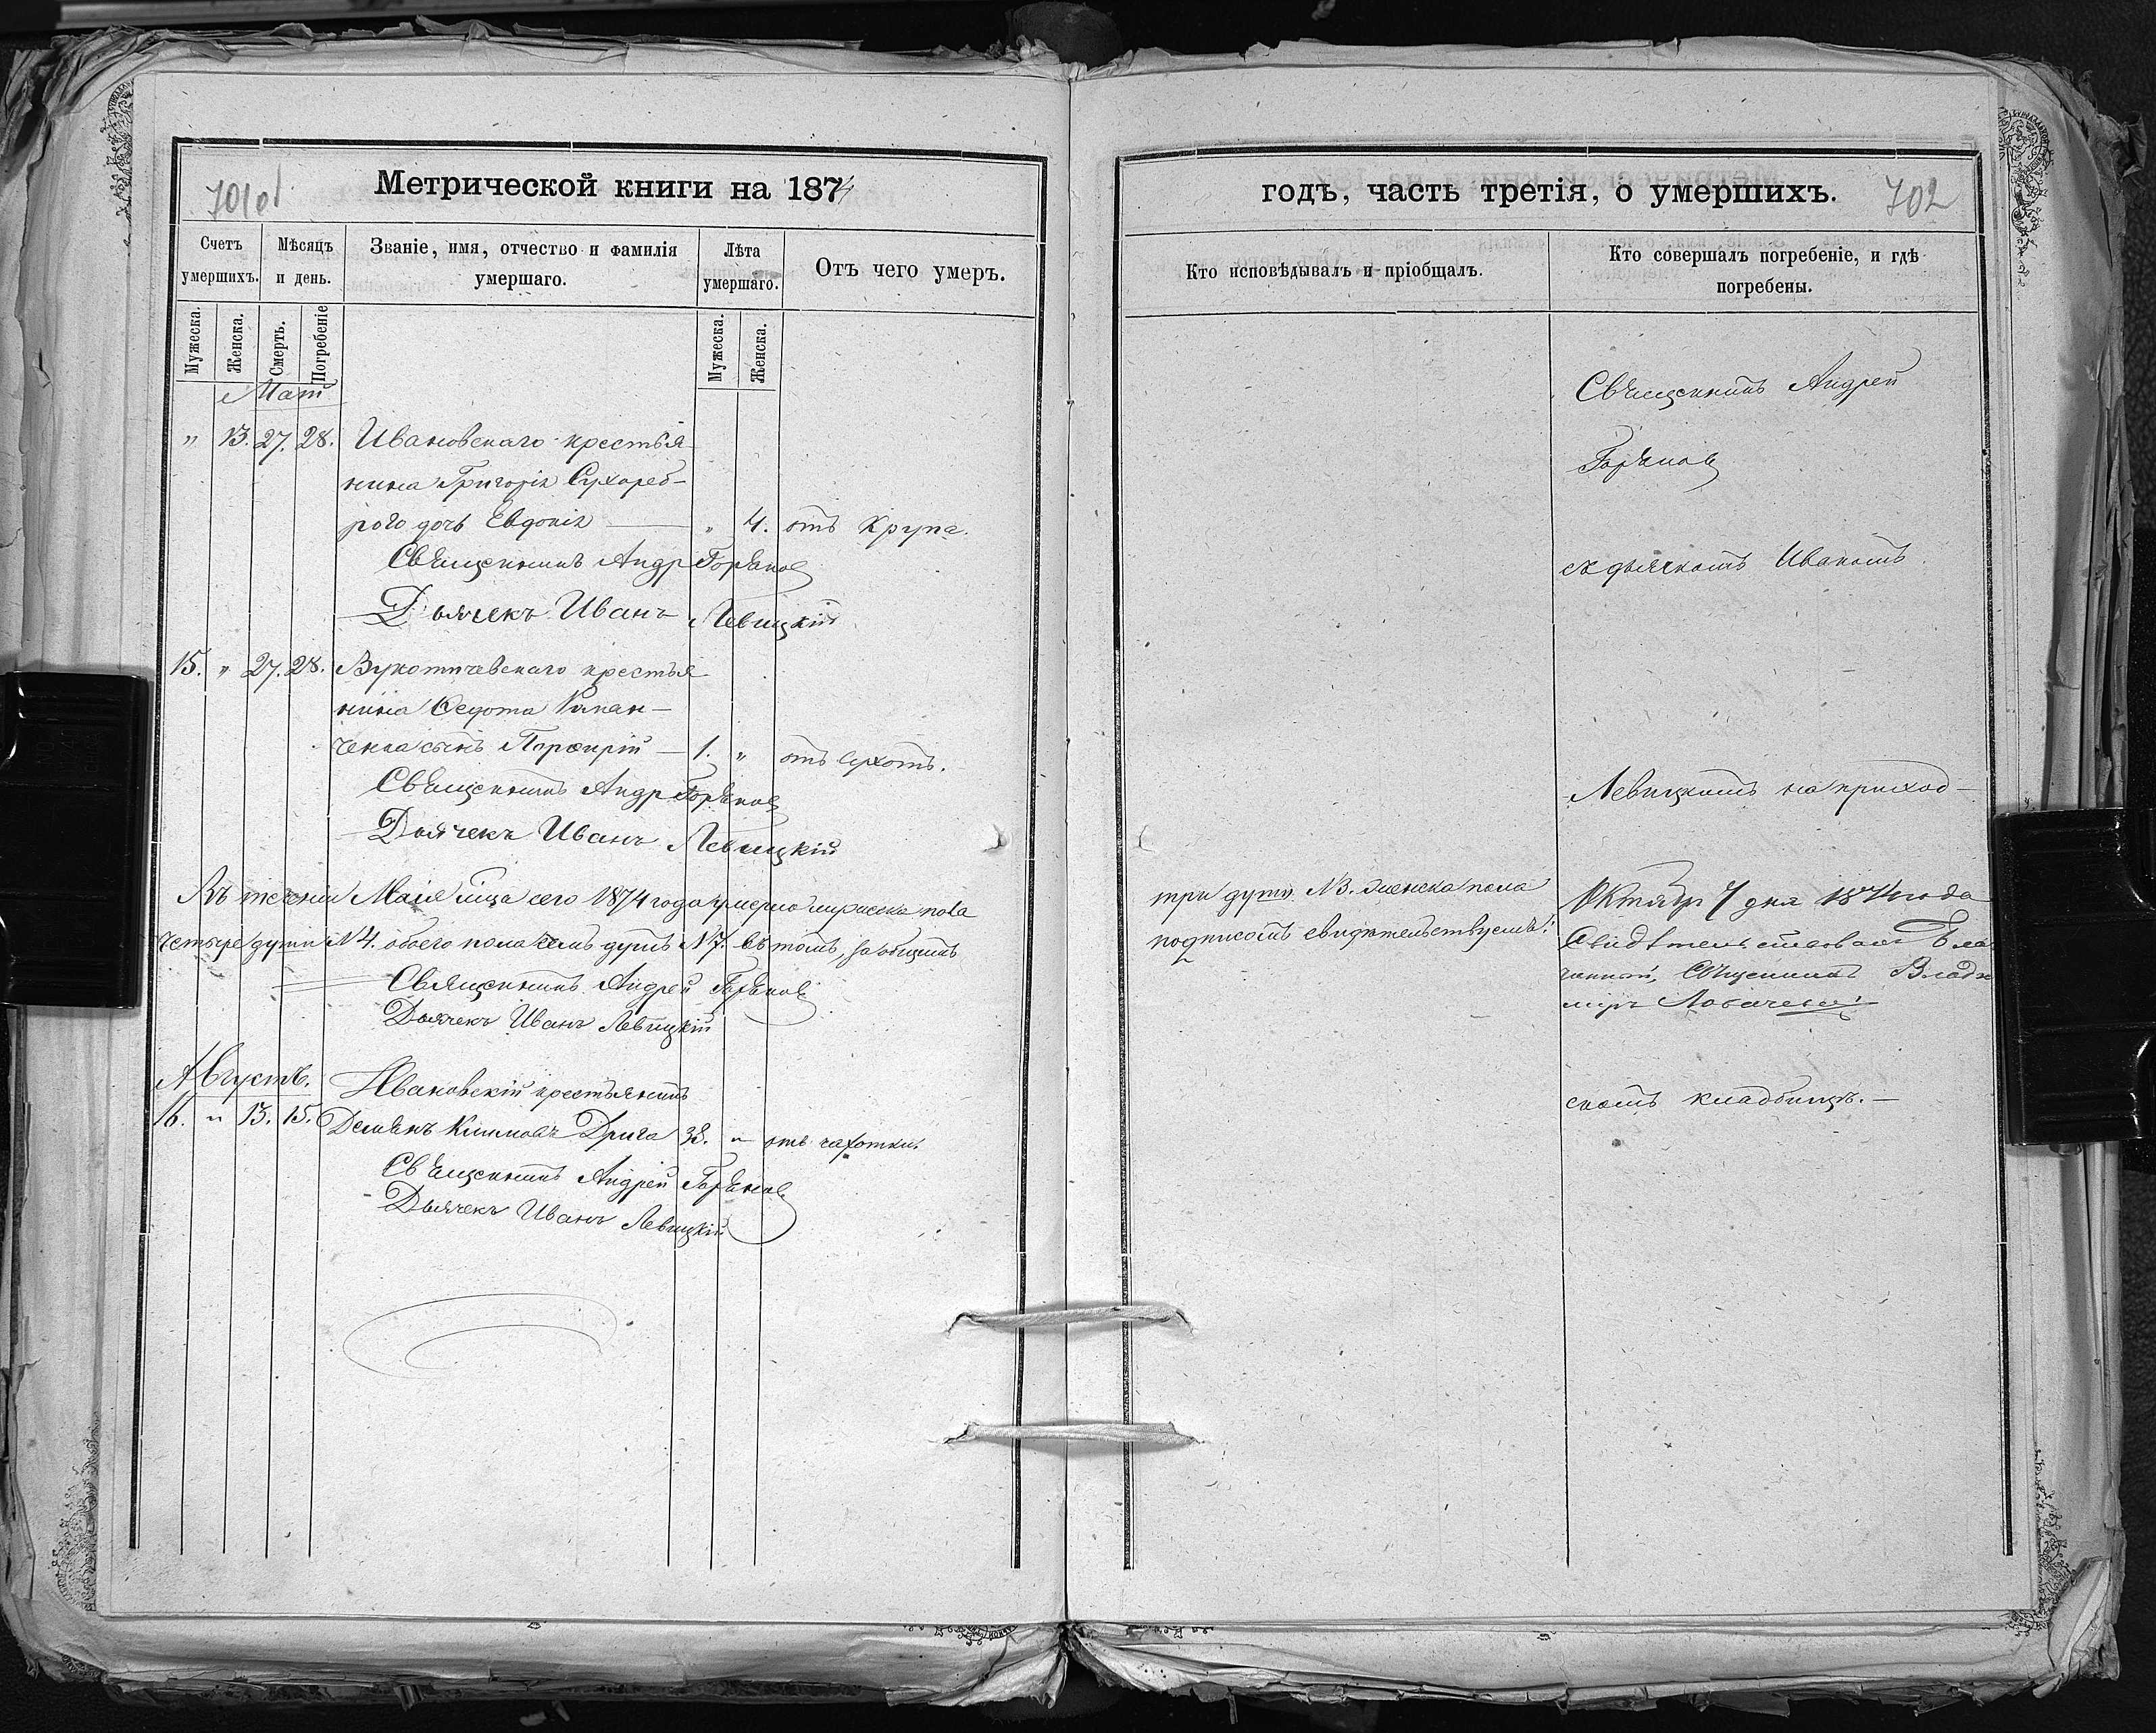 701об
Метрической книги на 1874
Счетъ умершихъ.
Мѣсяцъ и день.
Званіе, имя, отчество и фамилія умершаго.
Лѣта умершаго.
Отъ чего умеръ.
Мужеска.
Женска.
Смерть.
Погребеніе
Мужеска.
Женска.
Май
" 13. 27. 28. Ивановскаго крестья
нина Григорія Сухореб-
рого дочь Евдокія — " 4. отъ Крупа.
Священникъ Андр Горянов
Дьячекъ Иванъ Левицкій
15. " 27. 28. крестья
нина Федота
ченка сынъ Порфирій — 1. " отъ сухотъ.
Священникъ Андр Горянов
Дьячекъ Иванъ Левицкій
Въ теченіи Маія мца сего 1874 года умерло мужеска пола
четыре души №4. обоего пола семь душъ №7. въ томъ
Священникъ Андрей Горянов
Дьячекъ Иванъ Левицкій
Августъ.
Ивановскій крестьянинъ
16. " 13. 15. Демьянъ Климовъ Дрига 38. " отъ чахотки.
Священникъ Андрей Горянов
Дьячекъ Иванъ Левицкій
годъ, часть третія, о умершихъ.
702
Кто исповѣдывалъ и пріобщалъ.
Кто совершалъ погребеніе, и гдѣ
погребены.
Священникъ Андрей
Горянов
съ дьячкомъ Иваномъ
Левицкимъ на приход-
три души №3. женска пола
подписомъ свидѣтельствуемъ:
Октября 7 дня 1874 года
Свидѣтельствовалъ Бла
чинный, Священникъ Влади
миръ
скомъ кладбищѣ. —